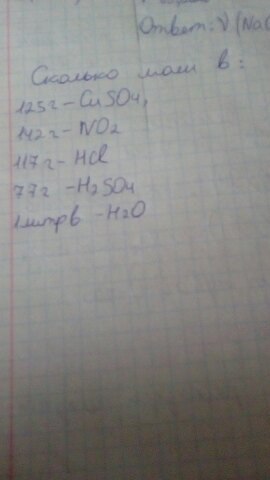 Ответ: V (NaC
Сколько моли в:
125г - CuSO4,
142г - NO2
117г - HCl
77г - H2SO4
1 литр в - H2O